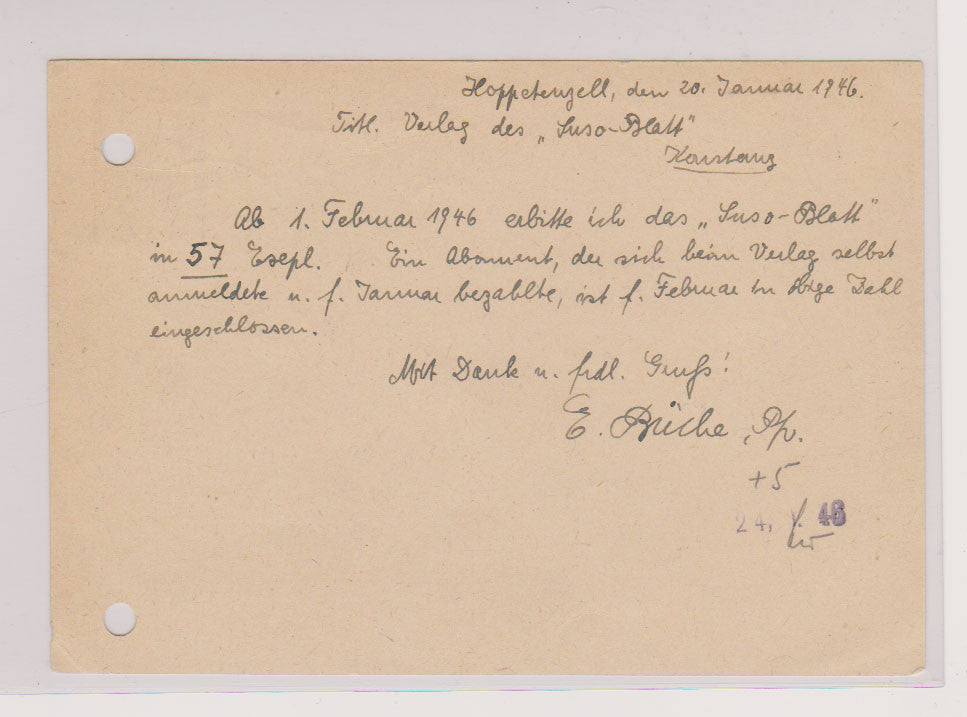 Hoppetenzell, den 20. Januar 1946.
Titl. Verlag des „Suso-Blatt"
Konstanz
Ab 1. Februar 1946 erbitte ich das „Suso-Blatt"
in 57 Exepl. Ein Abonnent, der sich beim Verlag selbst
anmeldete u. f. Januar bezahlte, ist f. Februar in obige Zahl
eingeschlossen.
Mit Dank u. frdl. Gruß!
E. Büche, Pfr.
+5
24. 1. 46